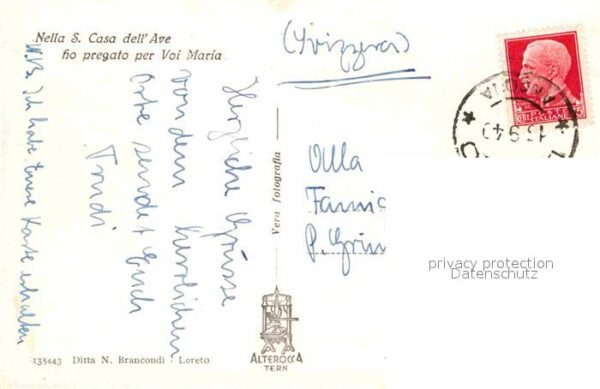 Nella S. Casa dell'Ave
ho pregato per Voi Maria
Herzliche Grüsse
von dem herrlichen
Orte sendet Euch
Trudi
N.B. Ich habe Eure Karte erhalten
(Svizzera)
Alla
Famig
P. Grim
privacy protection
Datenschutz
Vera fotografia
ALTEROCCA
TERNI
135443 Ditta N. Brancondi - Loreto
POSTE ITALIANE
ANCONA
13.9.40